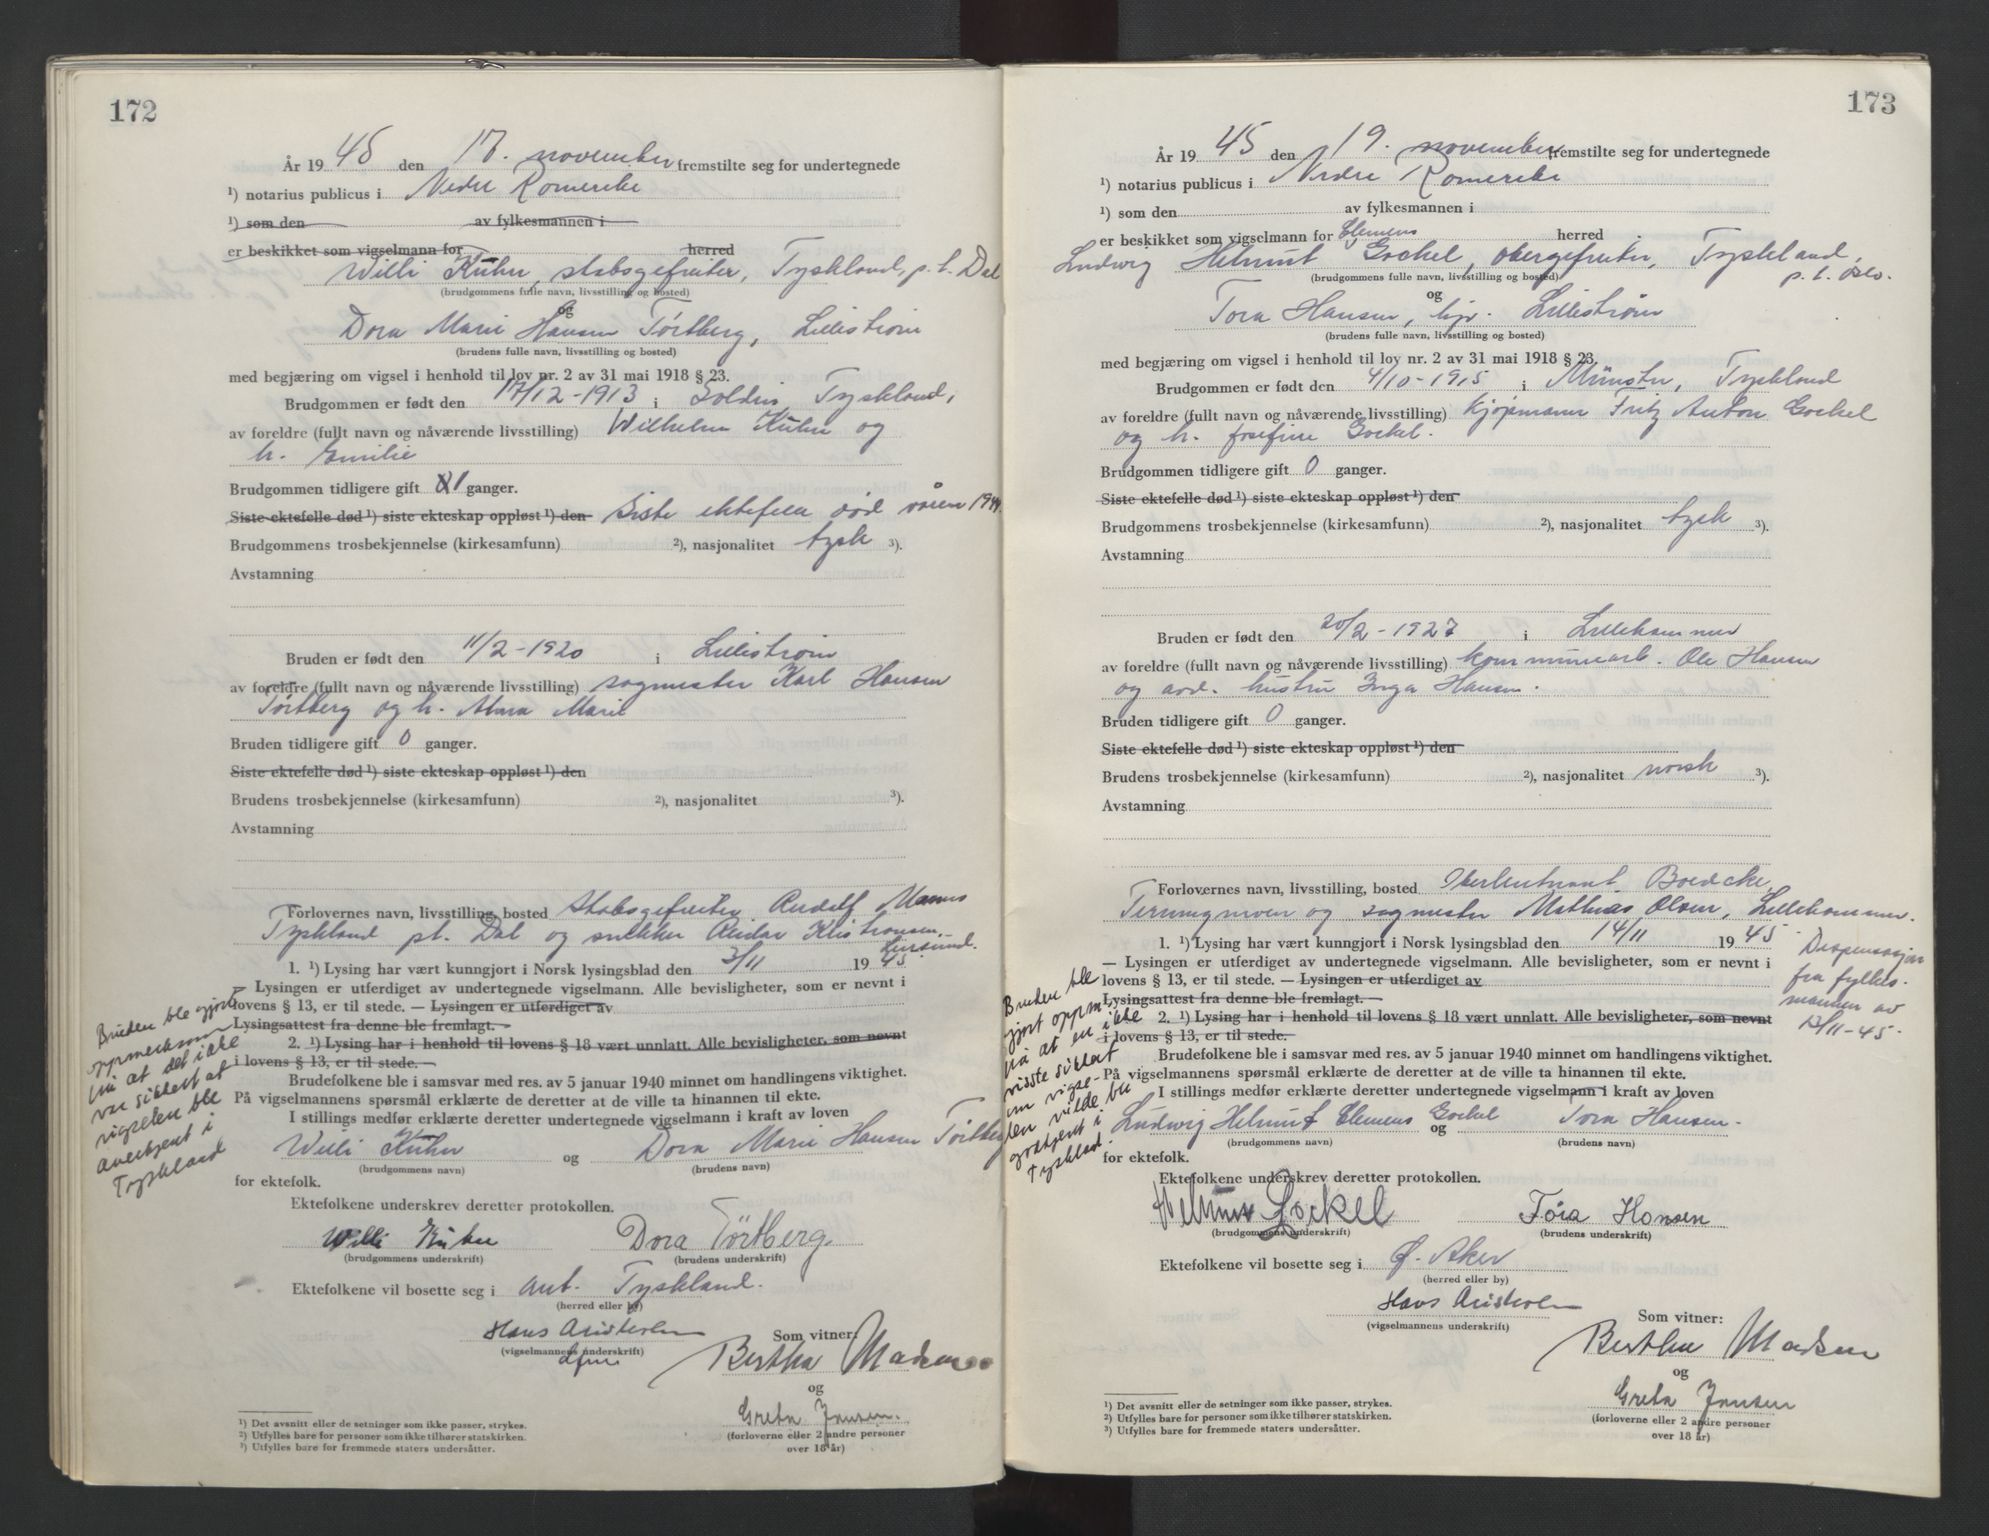 172
År 1945 den 17. november fremstilte seg for undertegnede
¹) notarius publicus i Nedre Romerike
¹) som den av fylkesmannen i
er beskikket som vigselmann for herred
Willi Kühn, stabsgefreiter, Tyskland, p.t. Dal
(brudgommens fulle navn, livsstilling og bosted)
og
Dora Marie Hansen Törtberg, Lillestrøm
(brudens fulle navn, livsstilling og bosted)
med begjæring om vigsel i henhold til lov nr. 2 av 31 mai 1918 § 23.
Brudgommen er født den 17/12-1913 i Soldin, Tyskland,
av foreldre (fullt navn og nåværende livsstilling) Wilhelm Kühn og
h. Emilie
Brudgommen tidligere gift 1 ganger.
Siste ektefelle død ¹) siste ekteskap oppløst ¹) den Siste ektefelle død våren 1944.
Brudgommens trosbekjennelse (kirkesamfunn) ²), nasjonalitet tysk ³).
Avstamning
Bruden er født den 11/2-1920 i Lillestrøm
av foreldre (fullt navn og nåværende livsstilling) sagmester Karl Hansen
Törtberg og h. Alma Marie
Bruden tidligere gift 0 ganger.
Siste ektefelle død ¹) siste ekteskap oppløst ¹) den
Brudens trosbekjennelse (kirkesamfunn) ²), nasjonalitet ³).
Avstamning
Forlovernes navn, livsstilling, bosted Stabsgefreiter Rudolf
Tyskland pt. Dal og snekker Reidar Kristiansen,
1. ¹) Lysing har vært kunngjort i Norsk lysingsblad den 3/11 1945.
— Lysingen er utferdiget av undertegnede vigselmann. Alle bevisligheter, som er nevnt i
lovens § 13, er til stede. — Lysingen er utferdiget av
Lysingsattest fra denne ble fremlagt. —
2. ¹) Lysing har i henhold til lovens § 18 vært unnlatt. Alle bevisligheter, som nevnt
i lovens § 13, er til stede. —
Bruden ble gjort
oppmerksom
på at det ikke
var sikkert at
vigselen ble
anerkjent i
Tyskland
Brudefolkene ble i samsvar med res. av 5 januar 1940 minnet om handlingens viktighet.
På vigselmannens spørsmål erklærte de deretter at de ville ta hinannen til ekte.
I stillings medfør erklærte deretter undertegnede vigselmann i kraft av loven
Willi Kühn og Dora Marie Hansen Törtberg
(brudgommens navn) (brudens navn)
for ektefolk.
Ektefolkene underskrev deretter protokollen.
Willi Kühn Dora Törtberg.
(brudgommens underskrift) (brudens underskrift)
Ektefolkene vil bosette seg i ant. Tyskland.
(herred eller by)
Hans Som vitner:
(vigselmannens underskrift) Bertha Madsen
og
Greta Jansen.
(forloverne eller 2 andre personer
over 18 år)
¹) Det avsnitt eller de setninger som ikke passer, strykes.
²) Utfylles bare for personer som ikke tilhører statskirken.
³) Utfylles bare for fremmede staters undersåtter.
173
År 1945 den 19. november fremstilte seg for undertegnede
¹) notarius publicus i Nedre Romerike
¹) som den av fylkesmannen i
er beskikket som vigselmann for herred
Ludwig Helmut Clemens Gockel, obergefreiter, Tyskland,
p.t. Oslo.
(brudgommens fulle navn, livsstilling og bosted)
og
Tora Hansen, hjv. Lillestrøm
(brudens fulle navn, livsstilling og bosted)
med begjæring om vigsel i henhold til lov nr. 2 av 31 mai 1918 § 23.
Brudgommen er født den 4/10-1915 i Münster, Tyskland
av foreldre (fullt navn og nåværende livsstilling) kjøpmann Fritz Anton Gockel
og h. Josefine Gockel.
Brudgommen tidligere gift 0 ganger.
Siste ektefelle død ¹) siste ekteskap oppløst ¹) den
Brudgommens trosbekjennelse (kirkesamfunn) ²), nasjonalitet tysk ³).
Avstamning
Bruden er født den 20/2-1927 i Lillehammer
av foreldre (fullt navn og nåværende livsstilling) kommunearb. Ole Hansen
og avd. hustru Inga Hansen.
Bruden tidligere gift 0 ganger.
Siste ektefelle død ¹) siste ekteskap oppløst ¹) den
Brudens trosbekjennelse (kirkesamfunn) ²), nasjonalitet norsk ³).
Avstamning
Forlovernes navn, livsstilling, bosted Oberleutnant Boedcke,
Terningmoen og sagmester Mathias Olsen, Lillehammer.
1. ¹) Lysing har vært kunngjort i Norsk lysingsblad den 14/11 1945.
— Lysingen er utferdiget av undertegnede vigselmann. Alle bevisligheter, som er nevnt i
lovens § 13, er til stede. — Lysingen er utferdiget av
Lysingsattest fra denne ble fremlagt. —
2. ¹) Lysing har i henhold til lovens § 18 vært unnlatt. Alle bevisligheter, som nevnt
i lovens § 13, er til stede. —
Dispensasjon
fra fylkes-
mannen av
13/11-45.
Bruden ble
gjort oppm.
på at en ikke
visste sikkert
om vigse-
len vilde bli
godkjent i
Tyskland.
Brudefolkene ble i samsvar med res. av 5 januar 1940 minnet om handlingens viktighet.
På vigselmannens spørsmål erklærte de deretter at de ville ta hinannen til ekte.
I stillings medfør erklærte deretter undertegnede vigselmann i kraft av loven
Ludwig Helmut Clemens Gockel og Tora Hansen.
(brudgommens navn) (brudens navn)
for ektefolk.
Ektefolkene underskrev deretter protokollen.
Helmut Gockel Tóra Hansen
(brudgommens underskrift) (brudens underskrift)
Ektefolkene vil bosette seg i Ø. Aker
(herred eller by)
Hans
(vigselmannens underskrift) Som vitner:
Bertha Madsen
og
Greta Jansen
(forloverne eller 2 andre personer
over 18 år)
¹) Det avsnitt eller de setninger som ikke passer, strykes.
²) Utfylles bare for personer som ikke tilhører statskirken.
³) Utfylles bare for fremmede staters undersåtter.